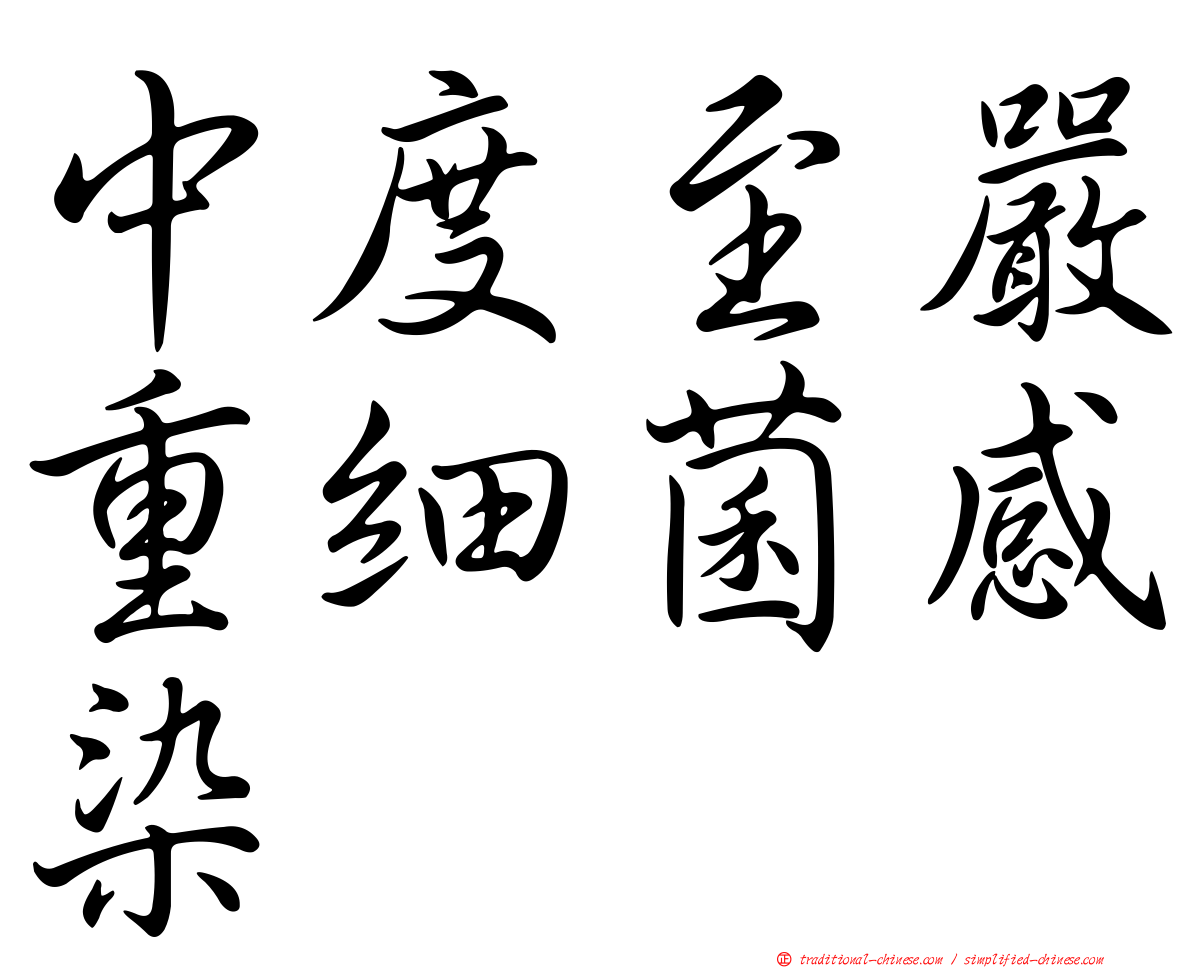 中度至嚴
重細菌感
染
㊣ traditional-chinese.com / simplified-chinese.com